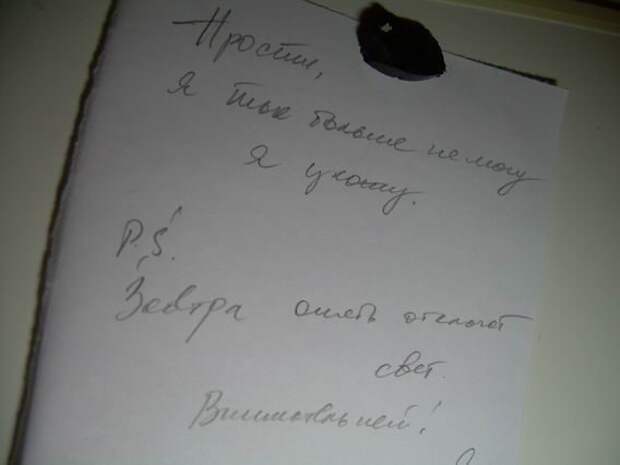 Прости,
я так больше не могу
я ухожу.
P.S.
Завтра опять отключат
свет.
Внимательней!